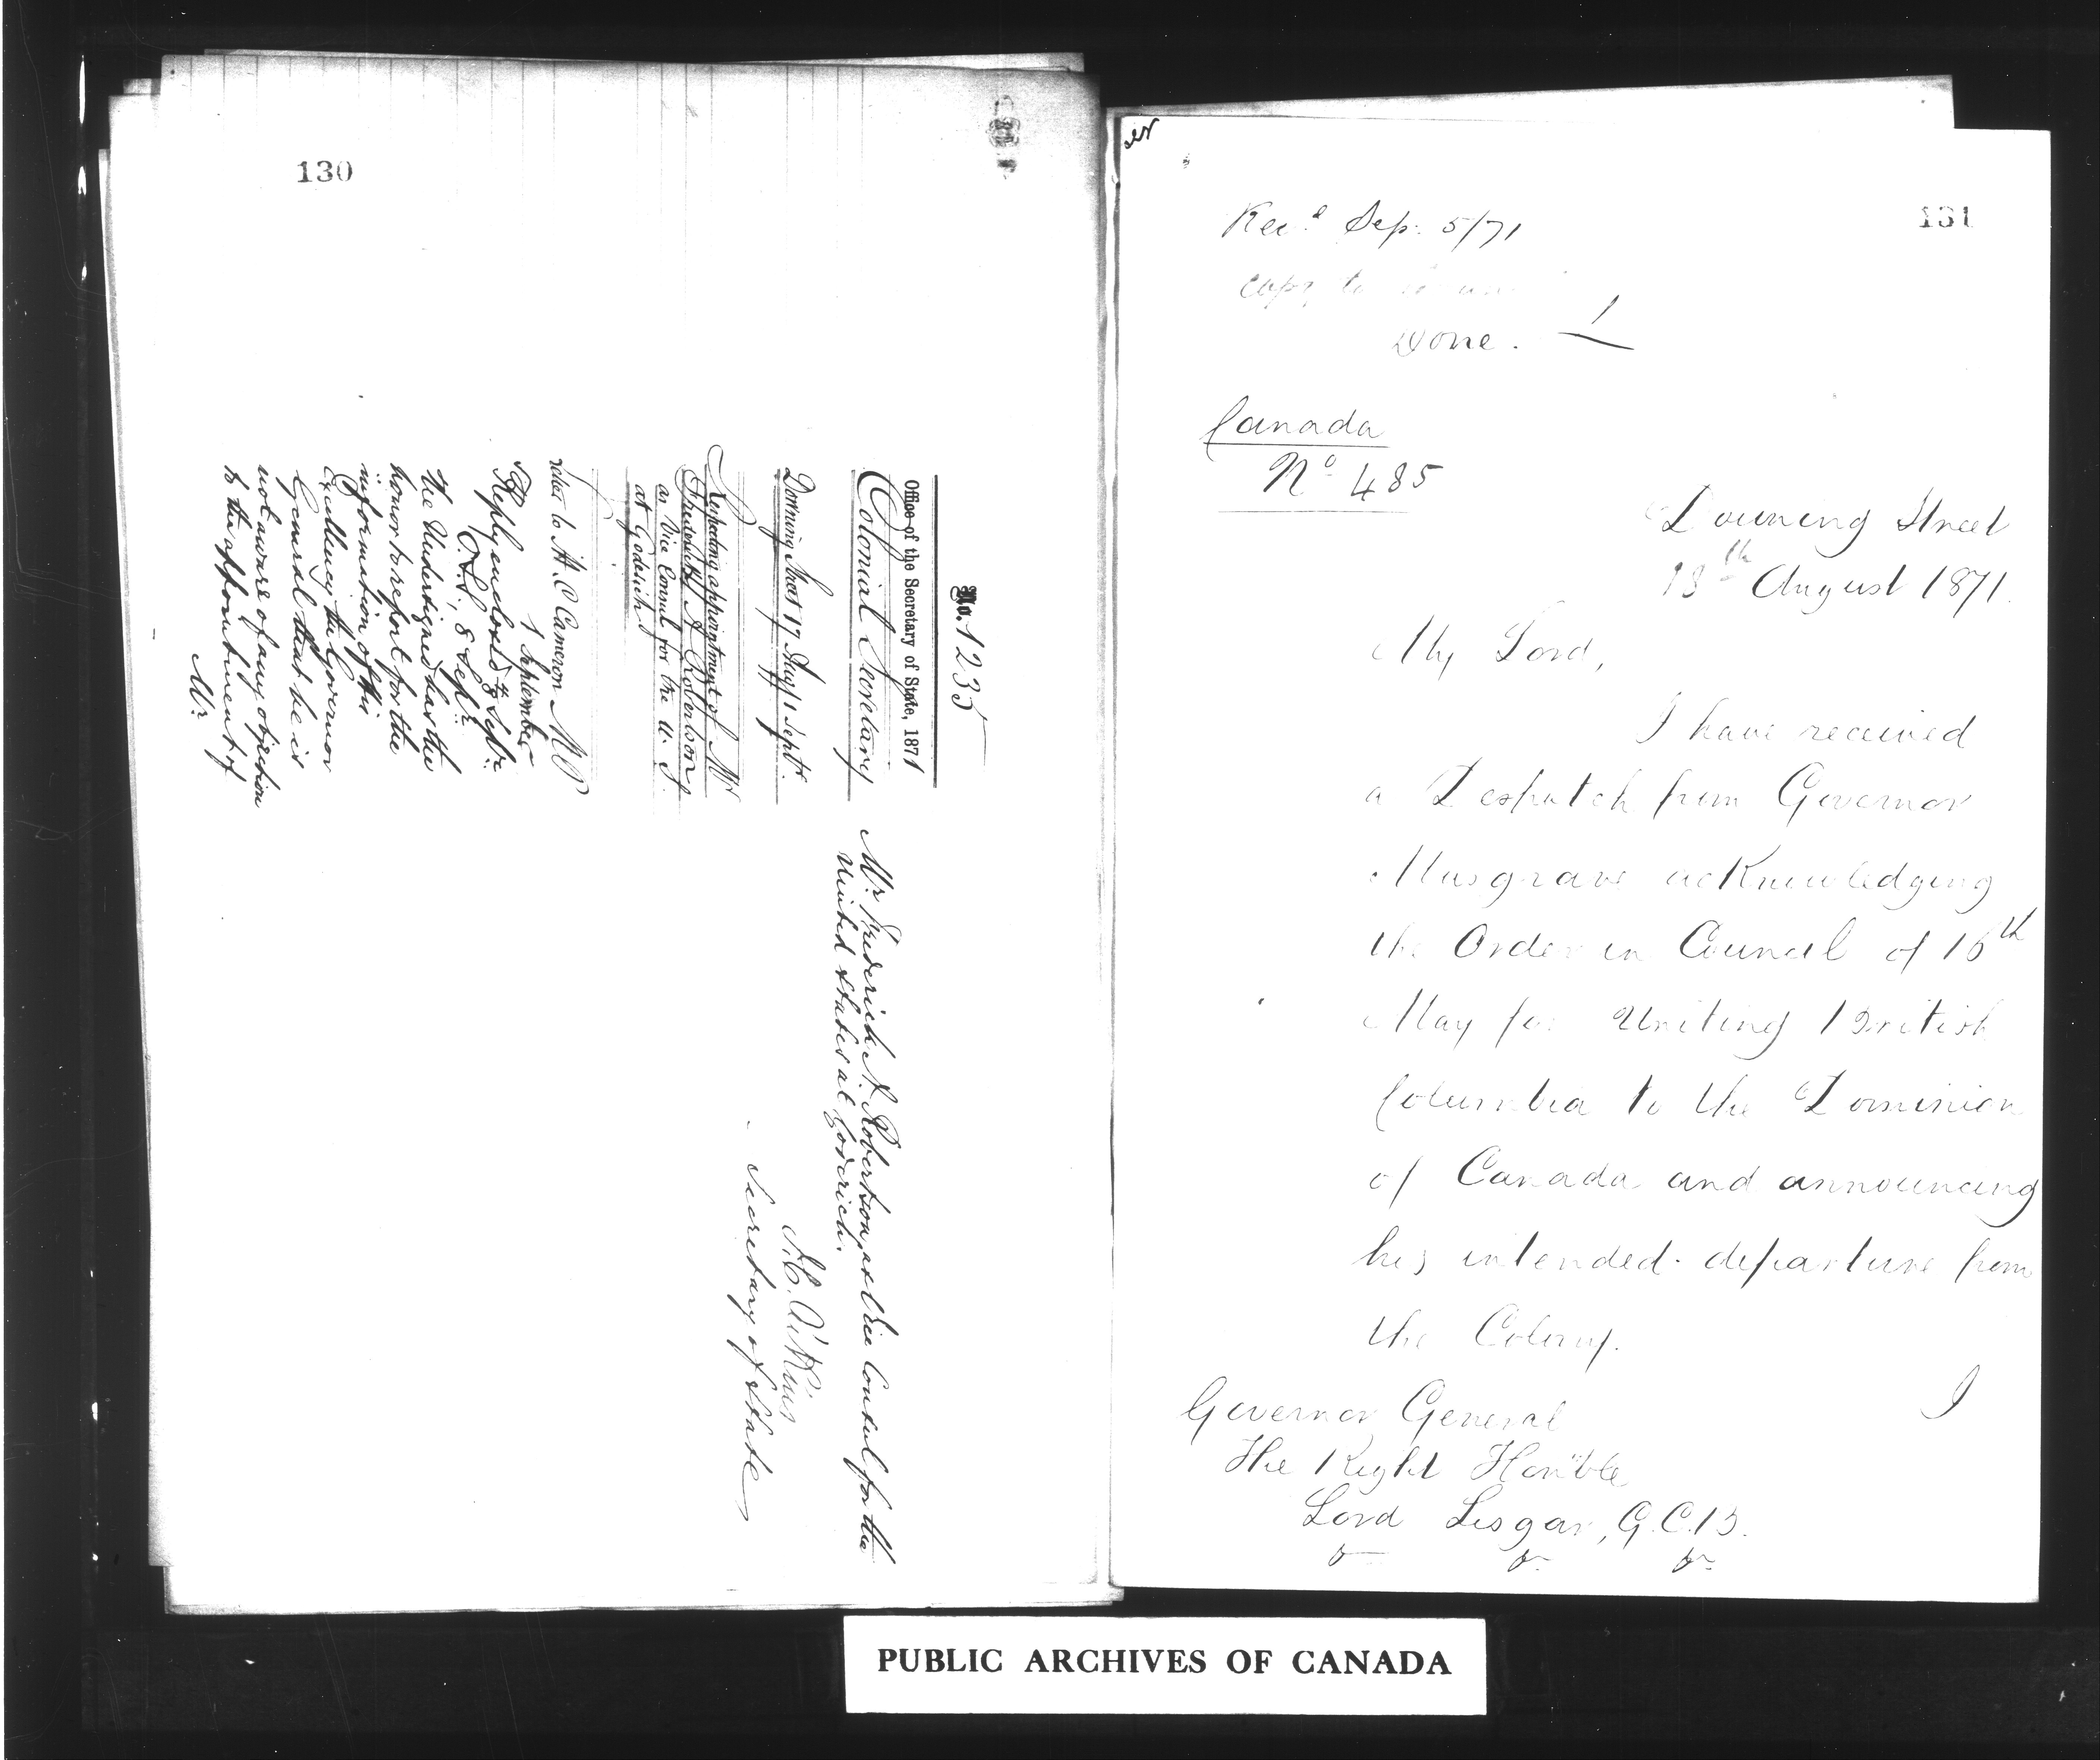 130
No. 1235
Office of the Secretary of State, 1871
Colonial Secretary
Downing Street 17 Aug / 1 Septr.
Respecting appointment of Mr
Frederick N. Robertson
as Vice Consul for the U. S.
at Goderich
refer to A. C Cameron MP
1 September
Reply enclosed 8th Septr.
8 Septr.
The Undersigned has the
honor to report for the
information of His
Excellency the Governor
General that he is
not aware of any objection
to the appointment of
Mr.
Mr. Frederick N. Robertson, as Vice Consul for the
United States at Goderich.
J.C. Aikins
Secretary of State
131
Recd. Sep: 5/71
Copy to
Done.
Canada
No. 485
Downing Street
18th August 1871.
My Lord,
I have received
a Despatch from Governor
Musgrave acknowledging
the Order in Council of 16th
May for Uniting British
Columbia to the Dominion
of Canada and announcing
his intended departure from
the Colony.
I
Governor General
The Right Honble
Lord Lisgar, G.C.B.
&c &c &c
PUBLIC ARCHIVES OF CANADA